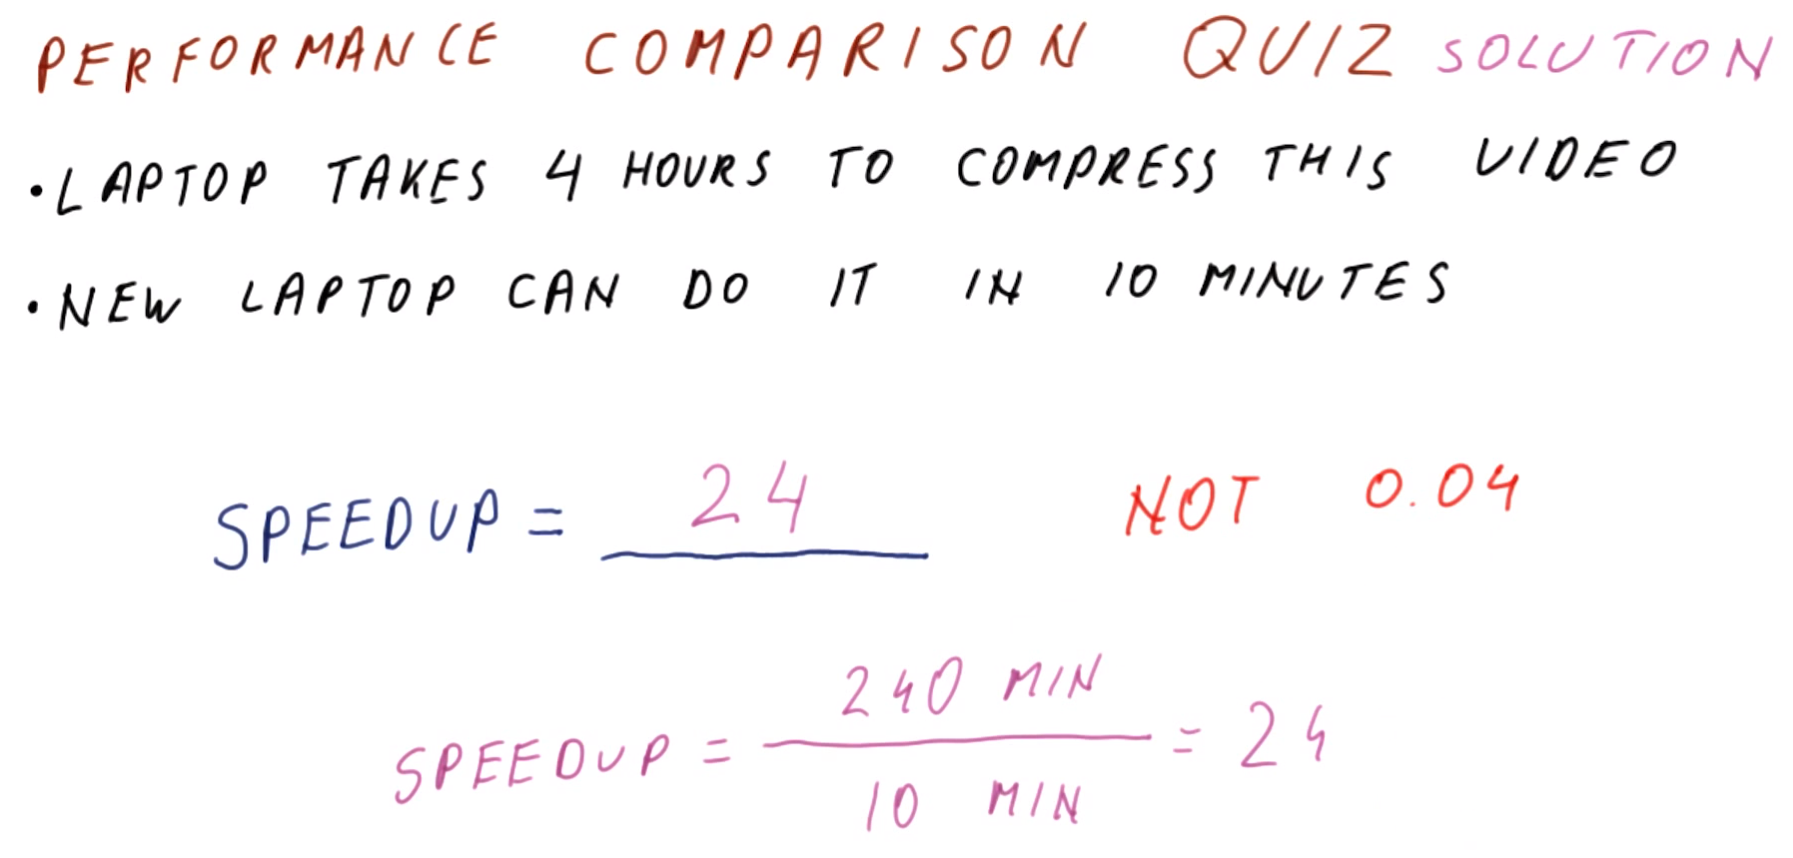 PERFORMANCE COMPARISON QUIZ SOLUTION
• LAPTOP TAKES 4 HOURS TO COMPRESS THIS VIDEO
• NEW LAPTOP CAN DO IT IN 10 MINUTES
SPEEDUP = 24 NOT 0.04
240 MIN
SPEEDUP = = 24
10 MIN